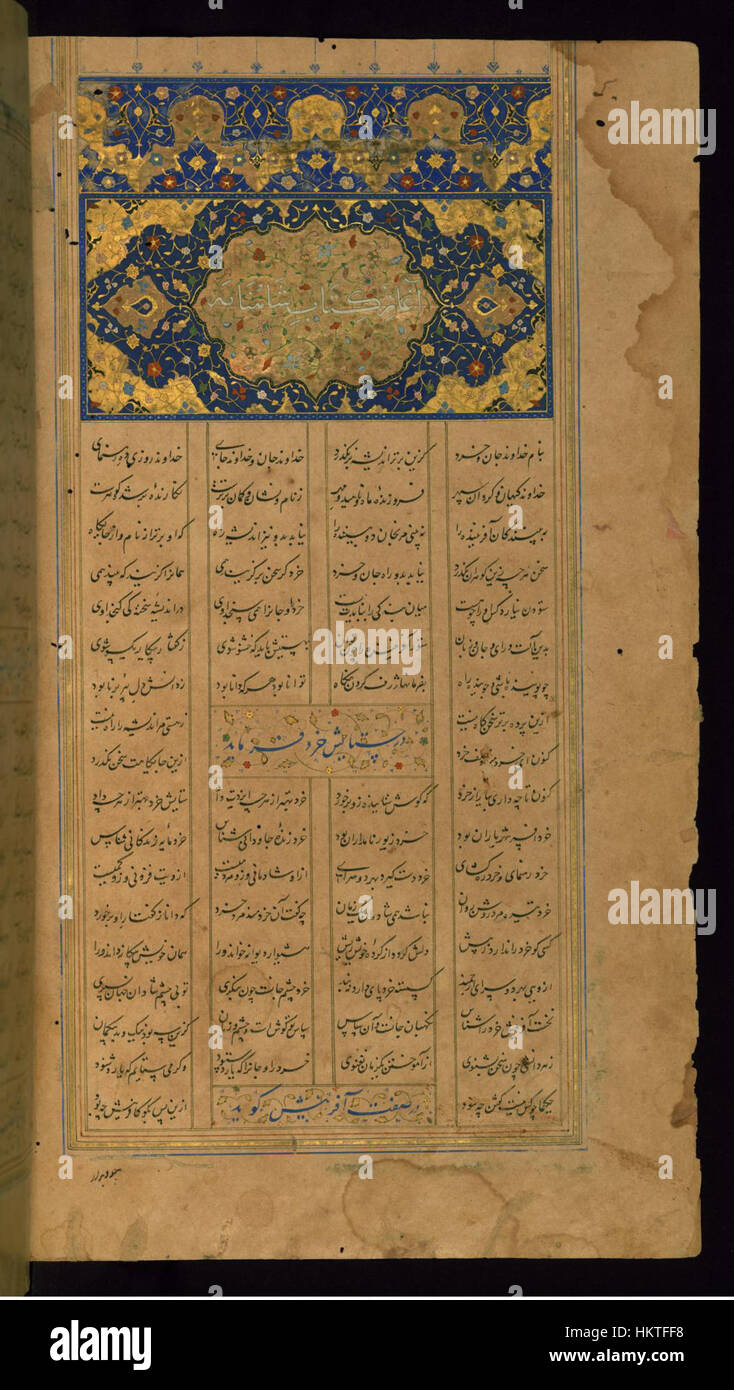 آغاز کتاب شاهنامه
بنام خداوند جان و خرد کزین برتر اندیشه برنگذرد خداوند جان و خداوند جای خداوند روزی ده رهنمای
خداوند کیهان و گردان سپهر فروزنده ماه و ناهید و مهر ز نام و نشان و گمان برترست نگارنده بر شده گوهرست
به بینندگان آفریننده را نه بینی مرنجان دو بیننده را نیابد بدو نیز اندیشه راه که او برتر از نام و از جایگاه
سخن هر چه زین گوهران بگذرد نیابد بدو راه جان و خرد خرد گر سخن برگزیند همی همانرا گزیند که بیند همی
ستودن نداند کس او را چو هست میان بندگی را ببایدت بست خرد را و جانرا همی سنجد اوی در اندیشه سخته کی گنجد اوی
بدین آلت و رای و جان و زبان ستود آفریننده را چون توان بهستیش باید که خستو شوی ز گفتار بیکار یکسو شوی
جوینده راه بفرمانها ژرف کردن نگاه توانا بود هر که دانا بود ز دانش دل پیر برنا بود
ازین پرده برتر سخن گاه نیست ز هستی مر اندیشه را راه نیست
در ستایش خرد فرماید
کنون ای خردمند وصف خرد ازین سخن بگذرد
کنون تا چه داری بیار از خرد که گوش نیوشنده زو برخورد خرد بهتر از هر چه ایزدت داد ستایش خرد بهتر از هر چه داد
خرد افسر شهریاران بود خرد زیور نامداران بود خرد زنده جاودانی شناس خرد مایه زندگانی شناس
خرد رهنمای و خرد دلگشای خرد دست گیرد بهر دو سرای ازو شادمانی و زو مردمیست ازویت فزونی و زویت کمیست
خرد تیره و مرد روشن روان نباشد همی شادمان یکزمان چه گفت آن خردمند مرد خرد که دانا ز گفت او برخورد
کسی کو خرد را ندارد ز پیش دلش گردد از کرده خویش ریش هشیوار دیوانه خواند ورا همان خویش بیگانه داند ورا
ازویی بهر دو سرای ارجمند گسسته خرد پای دارد ببند خرد چشم جانست چون بنگری تو بی چشم شادان جهان نسپری
نخست آفرینش خرد را شناس نگهبان جانست و آن سه پاس سه پاس تو گوش است و چشم و زبان کزین سه بود نیک و بد بیگمان
ز هر دانشی چون سخن بشنوی از آموختن یکزمان نغنوی خرد را و جانرا که یارد ستود وگر من ستایم که یارد شنود
حکیما چو کس نیست گفتن چه سود ازین پس بگو کافرینش چه بود
در صفت آفرینش گوید
alamy
Image ID: HKTFF8
www.alamy.com